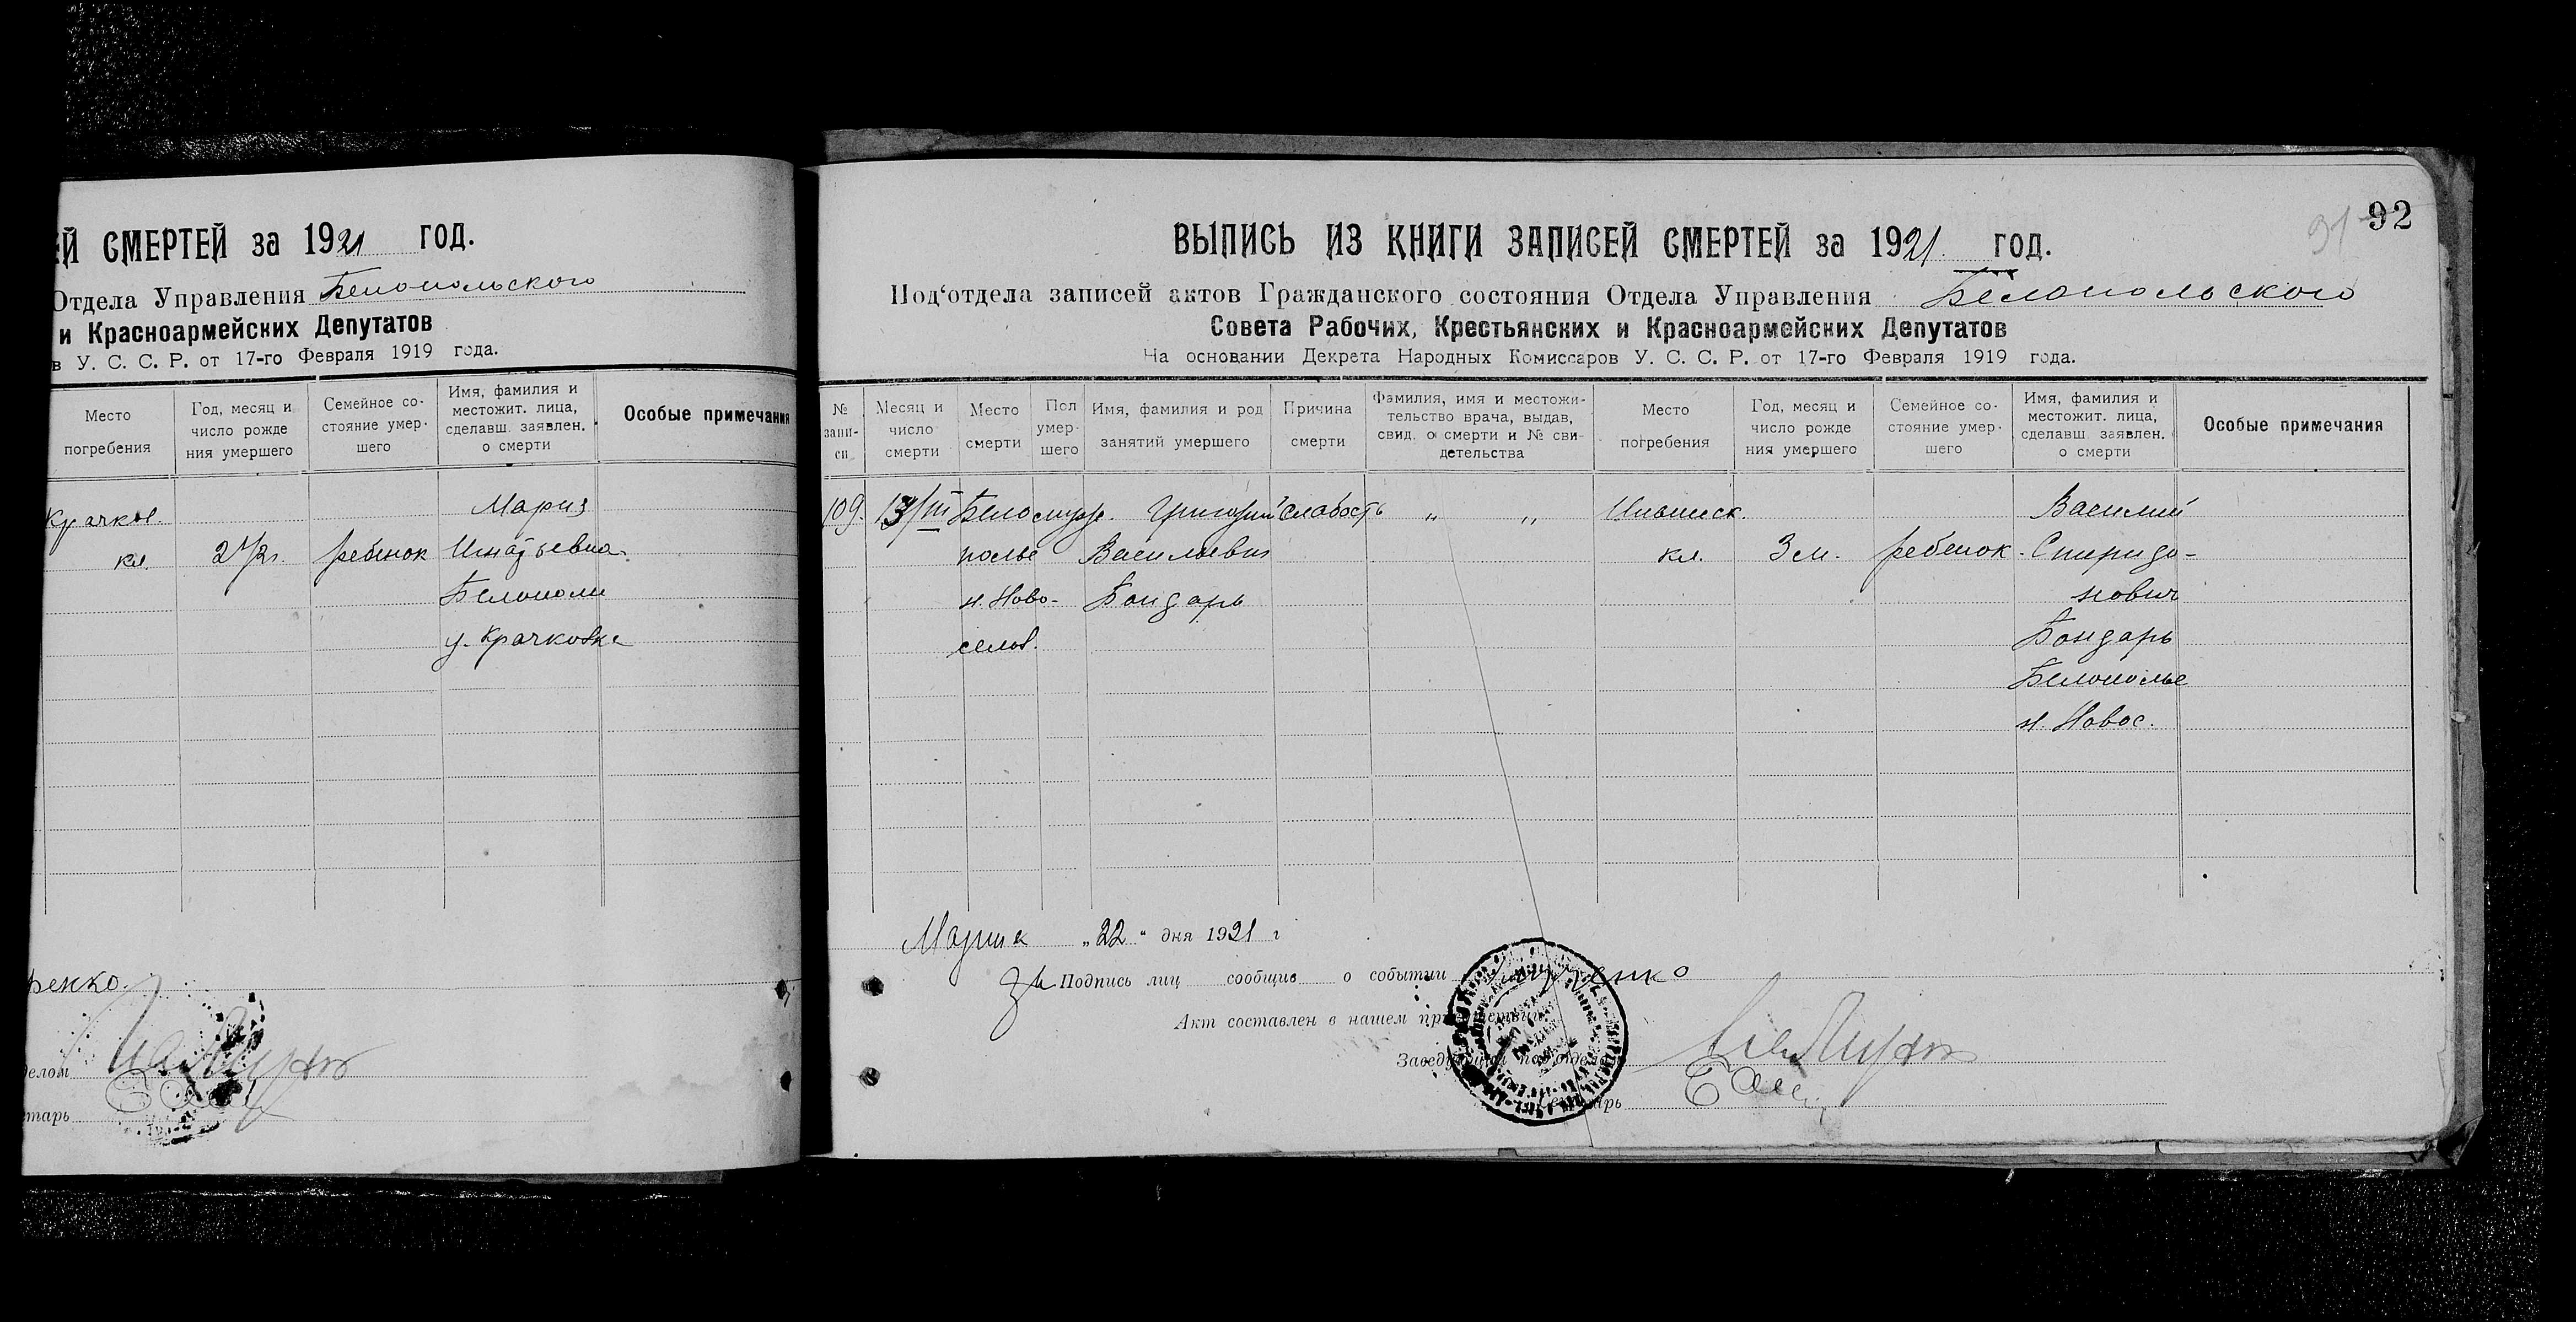 ЕЙ СМЕРТЕЙ за 1921 год.
Отдела Управления Белопольского
и Красноармейских Депутатов
в У. С. С. Р. от 17-го Февраля 1919 года.
Место погребения
Год, месяц и число рожде ния умершего
Семейное со- стояние умер- шего
Имя, фамилия и местожит. лица, сделавш. заявлен. о смерти
Особые примечания
Крачков. Мария
кл. 2 1/2 г. ребенок Игнатьевна
Белополь
у. Крачковка
ренко.
делом
тарь
92
91
ВЫПИСЬ ИЗ КНИГИ ЗАПИСЕЙ СМЕРТЕЙ за 1921 год.
Под‘отдела записей актов Гражданского состояния Отдела Управления Белопольского
Совета Рабочих, Крестьянских и Красноармейских Депутатов
На основании Декрета Народных Комиссаров У. С. С. Р. от 17-го Февраля 1919 года.
№ запи- си
Месяц и число смерти
Место смерти
Пол умер- шего
Имя, фамилия и род занятий умершего
Причина смерти
Фамилия, имя и местожи- тельство врача, выдав, свид. о смерти и № сви- детельства
Место погребения
Год, месяц и число рожде ния умершего
Семейное со- стояние умер- шего
Имя, фамилия и местожит. лица, сделавш. заявлен. о смерти
Особые примечания
109. 13/III Бело Григорий слабость „ „ Василий
полье Васильевич кл. 3 м. ребенок. Спиридо-
н. Ново- Бондарь нович
селов. Бондарь
Белополье
н. Новос.
Марта „22“ дня 1921 г
Подпись лиц сообщив о событии
Акт составлен в нашем присутствии
Заведующий подотделом
Секретарь